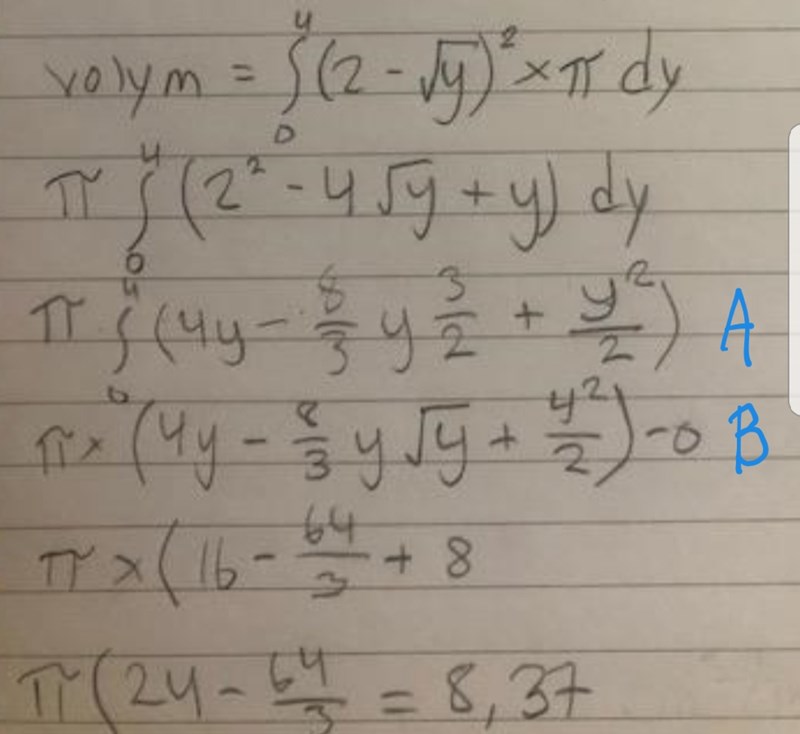 volym = ∫₀⁴ (2 - √y)² × π dy
π ∫₀⁴ (2² - 4√y + y) dy
π ∫₀⁴ (4y - 8/3 y 3/2 + y²/2) A
π × (4y - 8/3 y √y + y²/2) - 0 B
π × (16 - 64/3 + 8
π (24 - 64/3 = 8,37